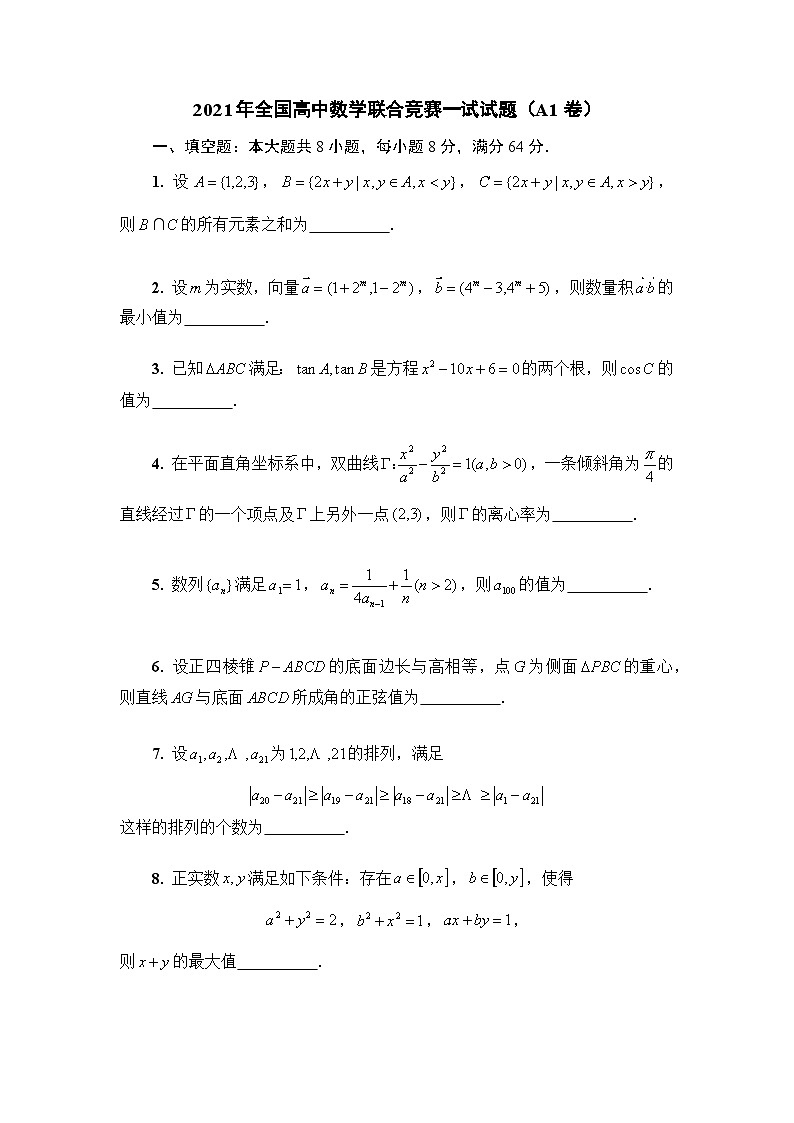 2021年全国高中数学联合竞赛一试试题（A1卷）
一、填空题：本大题共8小题，每小题8分，满分64分．
1. 设 A={1,2,3}， B={2x+y|x,y∈A,x<y}， C={2x+y|x,y∈A,x>y}，
则 B∩C 的所有元素之和为__________．
2. 设 m 为实数，向量 a⃗=(1+2^m,1−2^m)， b⃗=(4^m−3,4^m+5)，则数量积 a⃗·b⃗ 的
最小值为__________．
3. 已知 ΔABC 满足： tan A,tan B 是方程 x²−10x+6=0 的两个根，则 cos C 的
值为__________．
4. 在平面直角坐标系中，双曲线 Γ: x²/a² − y²/b² = 1(a,b>0)，一条倾斜角为 π/4 的
直线经过 Γ 的一个项点及 Γ 上另外一点 (2,3)，则 Γ 的离心率为__________．
5. 数列 {a_n} 满足 a₁=1， a_n = 1/(4a_{n−1}) + 1/n (n>2)，则 a₁₀₀ 的值为__________．
6. 设正四棱锥 P−ABCD 的底面边长与高相等，点 G 为侧面 ΔPBC 的重心，
则直线 AG 与底面 ABCD 所成角的正弦值为__________．
7. 设 a₁,a₂,Λ ,a₂₁ 为 1,2,Λ ,21 的排列，满足
|a₂₀−a₂₁|≥|a₁₉−a₂₁|≥|a₁₈−a₂₁|≥Λ ≥|a₁−a₂₁|
这样的排列的个数为__________．
8. 正实数 x,y 满足如下条件：存在 a∈[0,x]， b∈[0,y]，使得
a²+y²=2， b²+x²=1， ax+by=1，
则 x+y 的最大值__________．